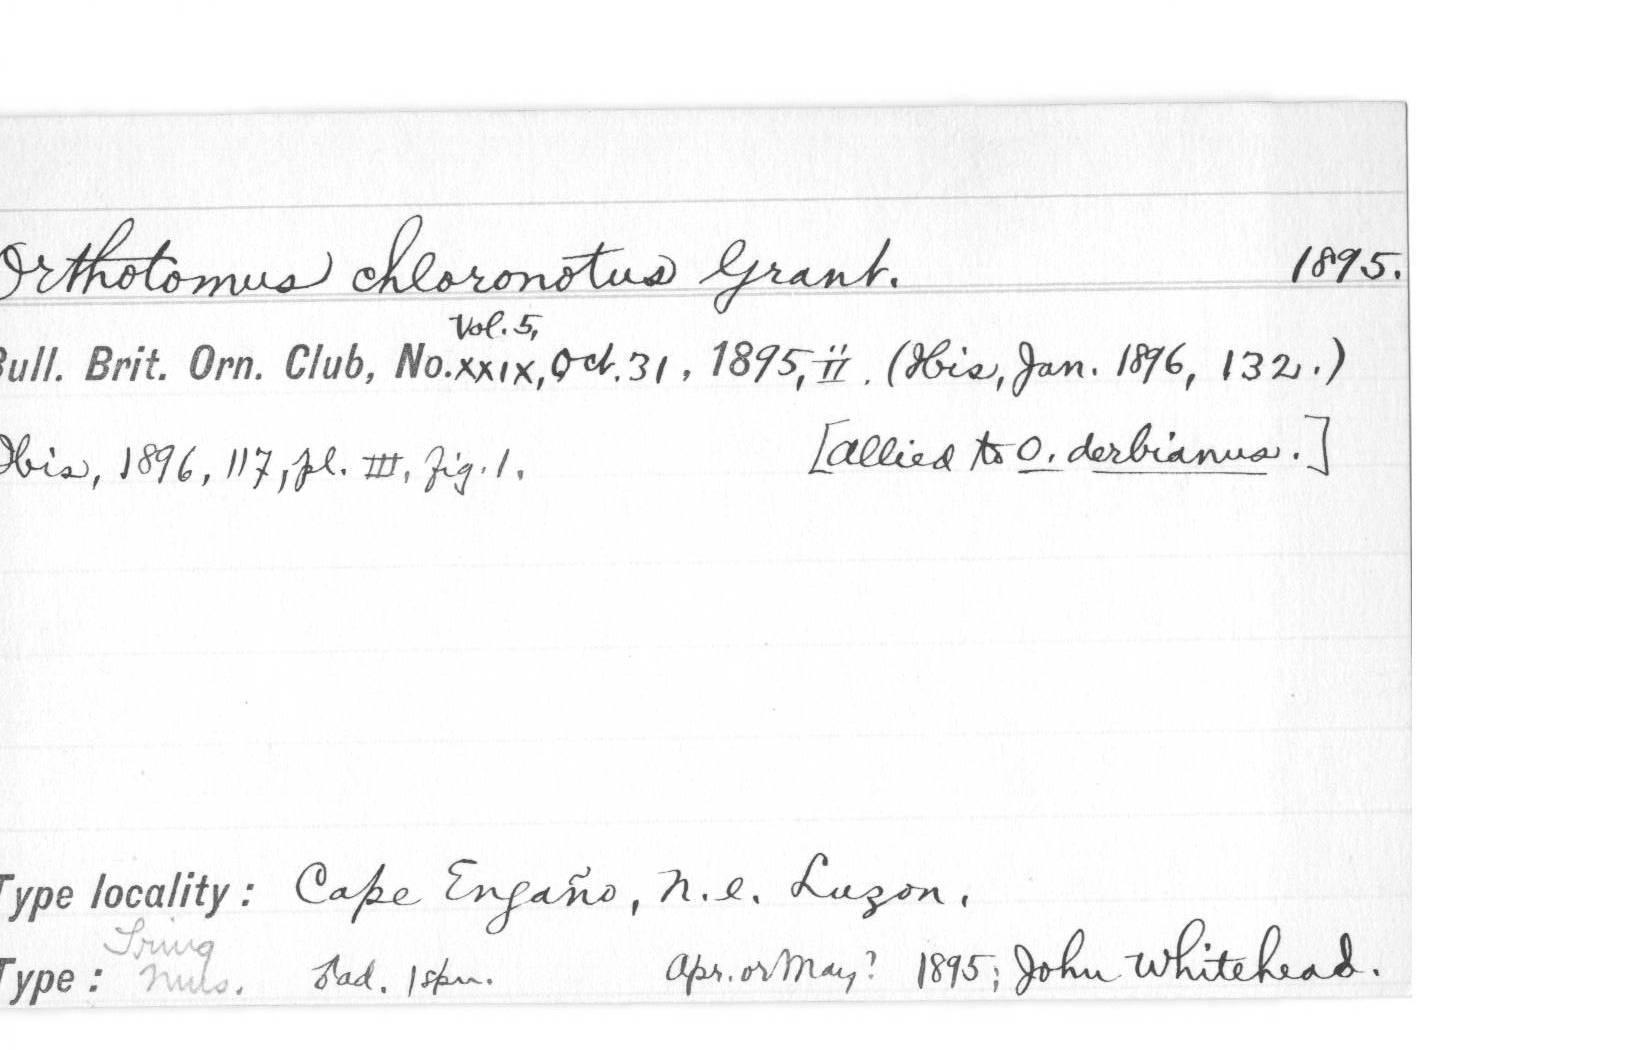 Orthotomus chloronotus Grant. 1895.
Vol. 5,
Bull. Brit. Orn. Club, No. xxix, Oct. 31, 1895, ii. (Ibis, Jan. 1896, 132.)
Ibis, 1896, 117, pl. III, fig. 1. [allied to O. derbianus.]
Type locality: Cape Engaño, n.e. Luzon.
Tring
Type: Mus. ad. 1 spm. Apr. or May? 1895; John Whitehead.